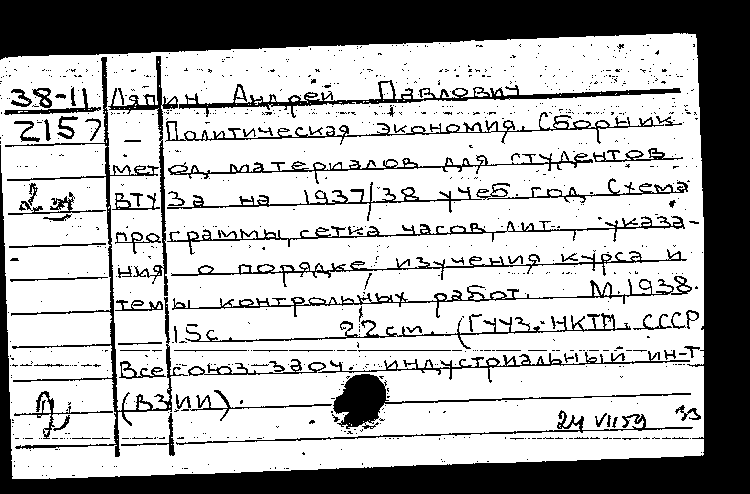 38-11 Ляпин, Андрей Павлович
2157 — Политическая экономия. Сборник
метод. материалов для студентов
2 эк ВТУЗа на 1937/38 учеб. год. Схема
программы, сетка часов, лит., указа-
ния о порядке изучения курса и
темы контрольных работ. М., 1938.
15с. 22 см. (ГУУЗ. НКТМ. СССР.
Всесоюз. заоч. индустриальный ин-т
(ВЗИИ).
24 VII 59 ЗЗ